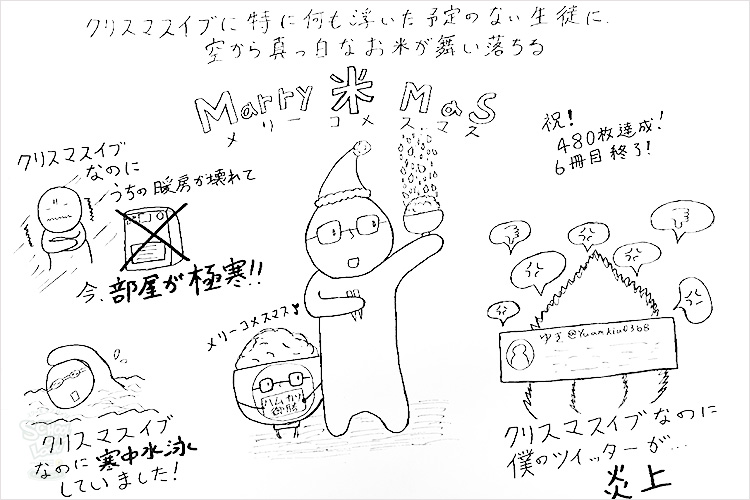 クリスマスイブに特に何も浮いた予定のない生徒に、
空から真っ白なお米が舞い落ちる
Marry 米 Mas
メリーコメスマス
祝!
480枚達成!
6冊目終了!
クリスマスイブ
なのに
うちの暖房が壊れて
今、部屋が極寒!!
メリーコメスマス♪
ハムかつ
御膳
クリスマスイブ
なのに寒中水泳
していました!
クリスマスイブなのに
僕のツイッターが…
炎上